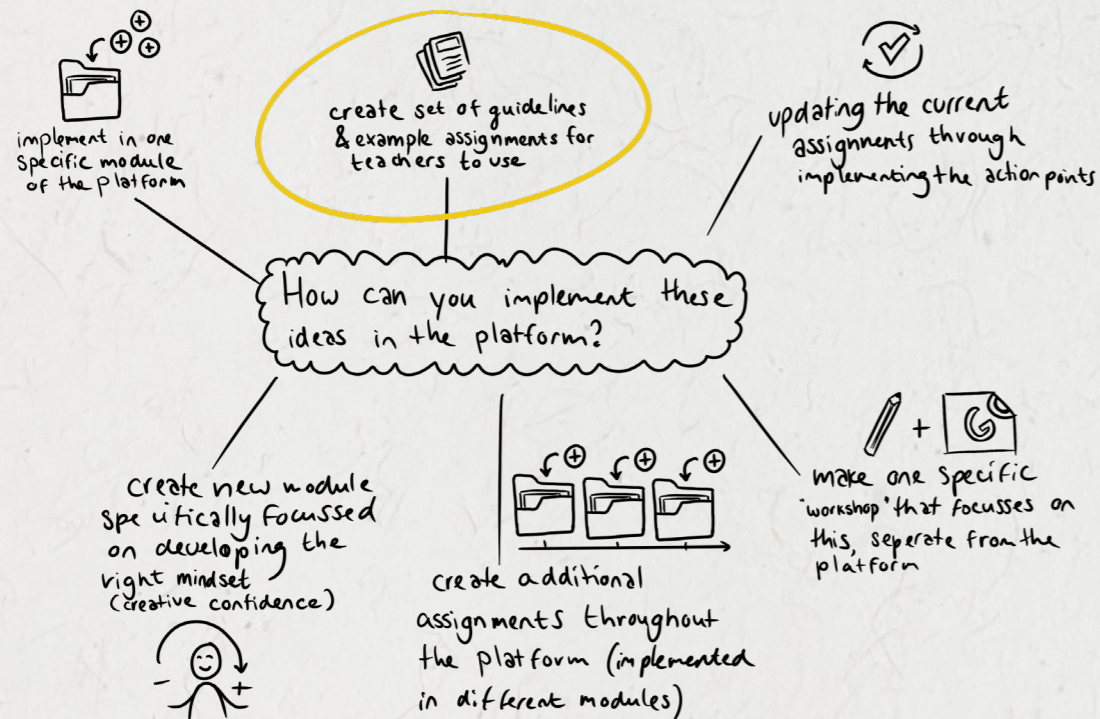 implement in one
specific module
of the platform
create set of guidelines
& example assignments for
teachers to use
updating the current
assignments through
implementing the action points
How can you implement these
ideas in the platform?
create new module
specifically focussed
on developing the
right mindset
(creative confidence)
- +
create additional
assignments throughout
the platform (implemented
in different modules)
+ G
make one specific
"workshop" that focusses on
this, seperate from the
platform